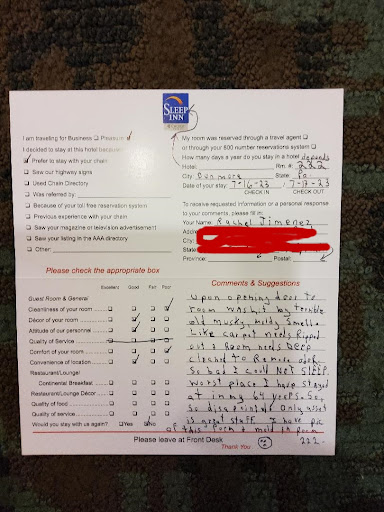 SLEEP
INN
I am traveling for Business ☐ Pleasure ☑
I decided to stay at this hotel because:
☑ Prefer to stay with your chain
☐ Saw our highway signs
☐ Used Chain Directory
☐ Was referred by:
☐ Because of your toll free reservation system
☐ Previous experience with your chain
☐ Saw your magazine or television advertisement
☐ Saw your listing in the AAA directory
☐ Other:
My room was reserved through a travel agent ☐
or through your 800 number reservations system ☐
How many days a year do you stay in a hotel depends
Hotel: Rm. #: 222
City: Dunmore State Pa.
Date of your stay: 7-16-23 7-17-23
CHECK IN CHECK OUT
To receive requested information or a personal response
to your comments, please fill in:
Your Name: Rachel Jimenez
Addre
City:
State
Province: Postal:
Please check the appropriate box
Excellent Good Fair Poor
Guest Room & General
Cleanliness of your room
Décor of your room
Attitude of our personnel
Quality of Service
Comfort of your room
Convenience of location
Restaurant/Lounge/
Continental Breakfast
Restaurant/Lounge Décor
Quality of food
Quality of service
Would you stay with us again? ☐Yes ☑No
Comments & Suggestions
Upon opening door to
room was hit by terrible
old musky, moldy smell.
Like carpet needs Ripped
out & Room needs Deep
cleaned to Remove odor.
So bad I could Not SLEEP.
Worst place I have stayed
at in my 64 years. So,
so disappointed. Only asset
is great staff. I have pic
of this form & mold in Room
222.
Please leave at Front Desk
Thank You